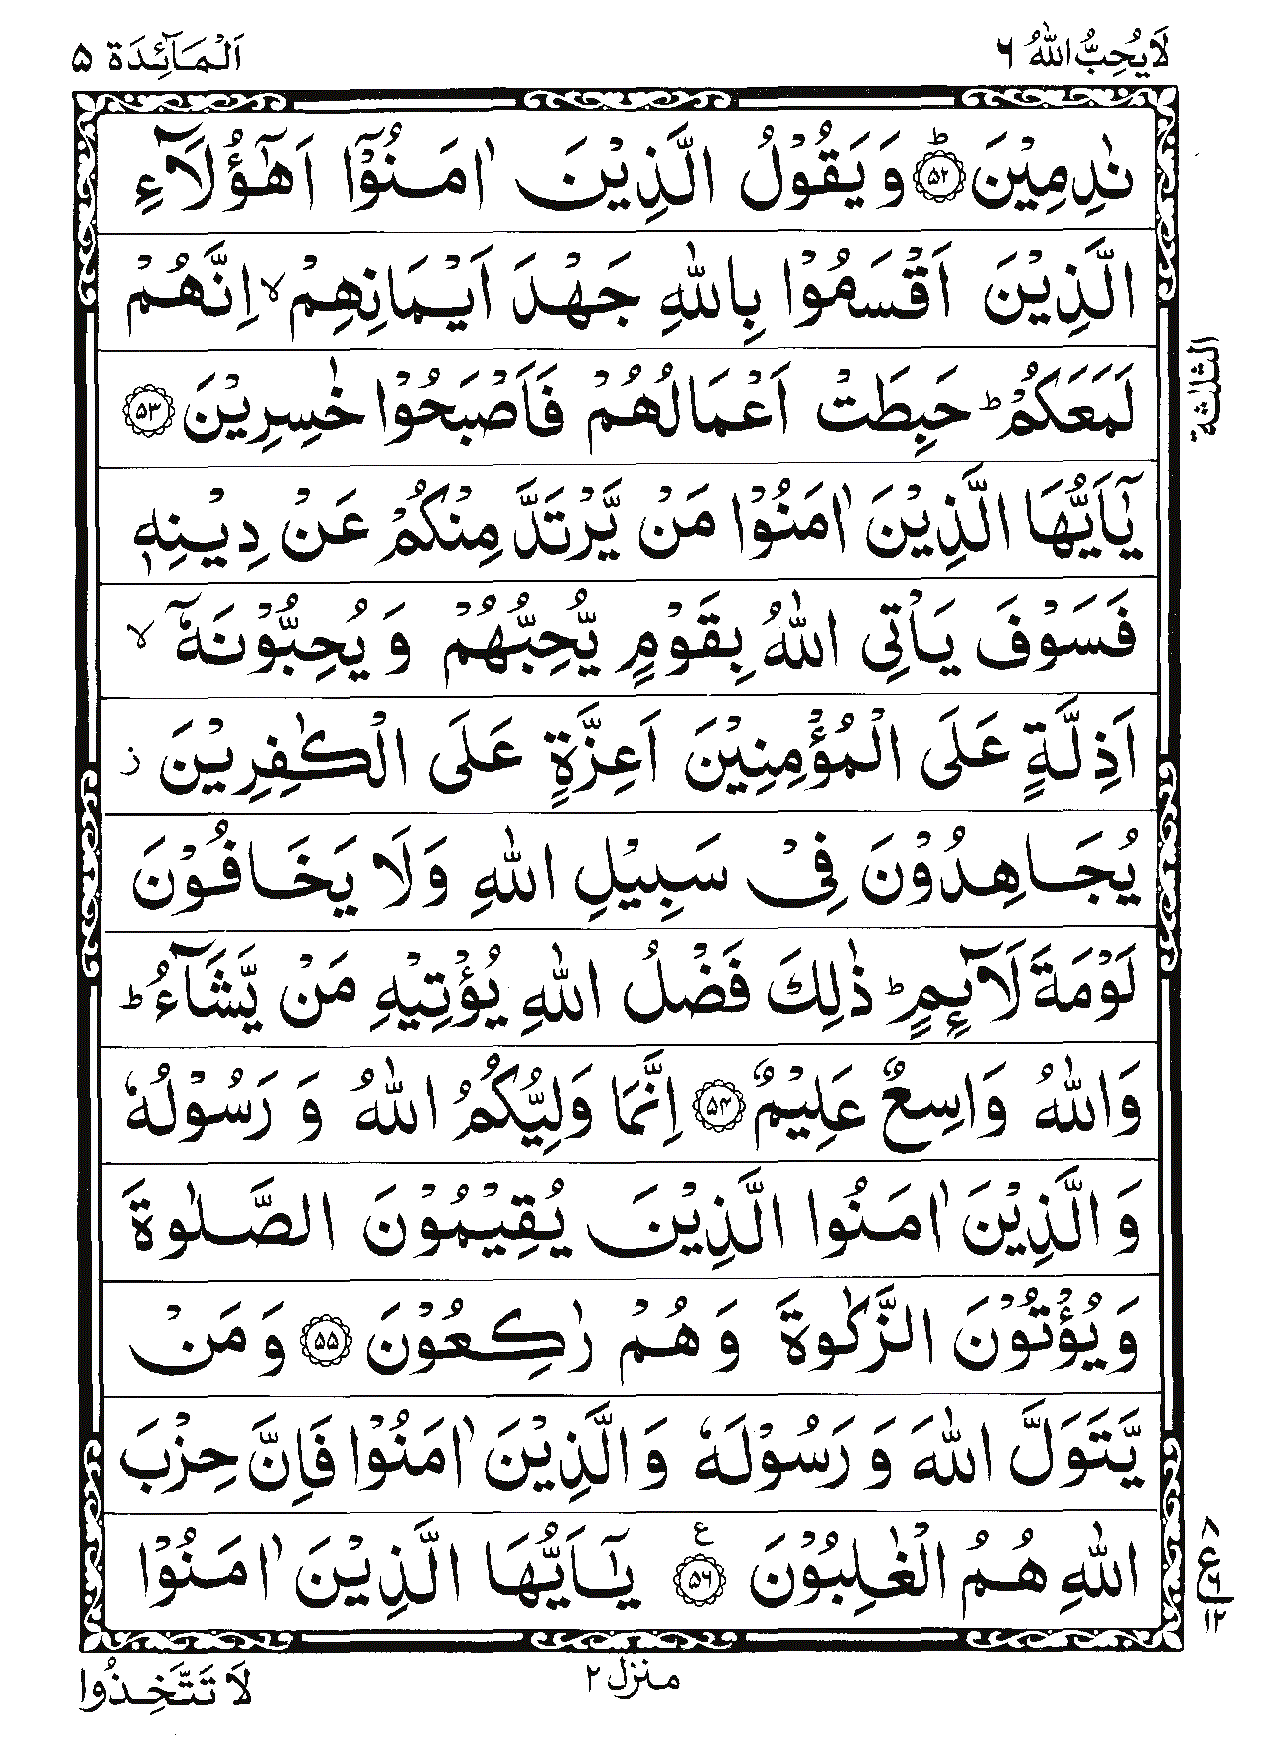 لَا يُحِبُّ اللّٰهُ ۶
اَلْمَآئِدَة ۵
نٰدِمِيْنَ ؕ ﴿۵۲﴾ وَ يَقُوْلُ الَّذِيْنَ اٰمَنُوْۤا اَهٰۤؤُلَآءِ
الَّذِيْنَ اَقْسَمُوْا بِاللّٰهِ جَهْدَ اَيْمَانِهِمْ ۙ اِنَّهُمْ
لَمَعَكُمْ ؕ حَبِطَتْ اَعْمَالُهُمْ فَاَصْبَحُوْا خٰسِرِيْنَ ﴿۵۳﴾
الثلثة
يٰۤاَيُّهَا الَّذِيْنَ اٰمَنُوْا مَنْ يَّرْتَدَّ مِنْكُمْ عَنْ دِيْنِهٖ
فَسَوْفَ يَاْتِى اللّٰهُ بِقَوْمٍ يُّحِبُّهُمْ وَ يُحِبُّوْنَهٗۤ ۙ
اَذِلَّةٍ عَلَى الْمُؤْمِنِيْنَ اَعِزَّةٍ عَلَى الْكٰفِرِيْنَ ز
يُجَاهِدُوْنَ فِىْ سَبِيْلِ اللّٰهِ وَلَا يَخَافُوْنَ
لَوْمَةَ لَآئِمٍ ؕ ذٰلِكَ فَضْلُ اللّٰهِ يُؤْتِيْهِ مَنْ يَّشَآءُ ؕ
وَاللّٰهُ وَاسِعٌ عَلِيْمٌ ﴿۵۴﴾ اِنَّمَا وَلِيُّكُمُ اللّٰهُ وَ رَسُوْلُهٗ
وَالَّذِيْنَ اٰمَنُوا الَّذِيْنَ يُقِيْمُوْنَ الصَّلٰوةَ
وَيُؤْتُوْنَ الزَّكٰوةَ وَ هُمْ رٰكِعُوْنَ ﴿۵۵﴾ وَ مَنْ
يَّتَوَلَّ اللّٰهَ وَ رَسُوْلَهٗ وَالَّذِيْنَ اٰمَنُوْا فَاِنَّ حِزْبَ
اللّٰهِ هُمُ الْغٰلِبُوْنَ ﴿۵۶﴾ ع يٰۤاَيُّهَا الَّذِيْنَ اٰمَنُوْا
۸ ع ۶ ۱۲
منزل ۲
لَا تَتَّخِذُوا